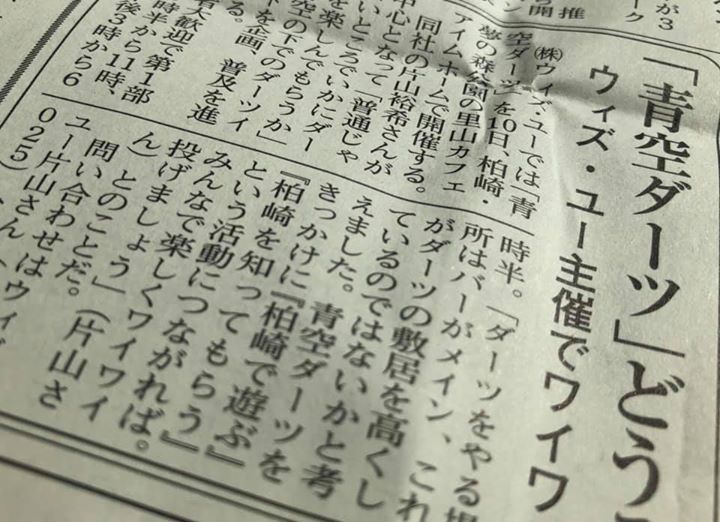 「青空ダーツ」どう
ウィズ・ユー主催でワイワ
㈱ウィズ・ユーでは「青
空ダーツ」を10日、柏崎・
夢の森公園の里山カフェ
アイムホームで開催する。
同社の片山裕希さんが
中心となって「普通じゃ
ないところでいかにダー
ツを楽しんでもらうか」
青空の下でのダーツイ
トを企画
普及を進
る。
者大歓迎で第1部
時半から11時、
後3時から6
時半。「ダーツをやる場
所はバーがメイン、これ
がダーツの敷居を高くし
ているのではないかと考
えました。青空ダーツを
きっかけに『柏崎で遊ぶ』
『柏崎を知ってもらう』
という活動につながれば。
みんなで楽しくワイワイ
投げましょう」(片山さ
ん)とのことだ。
問い合わせはウィズ・
ユー片山さん
025)
推
開
が3
ーク